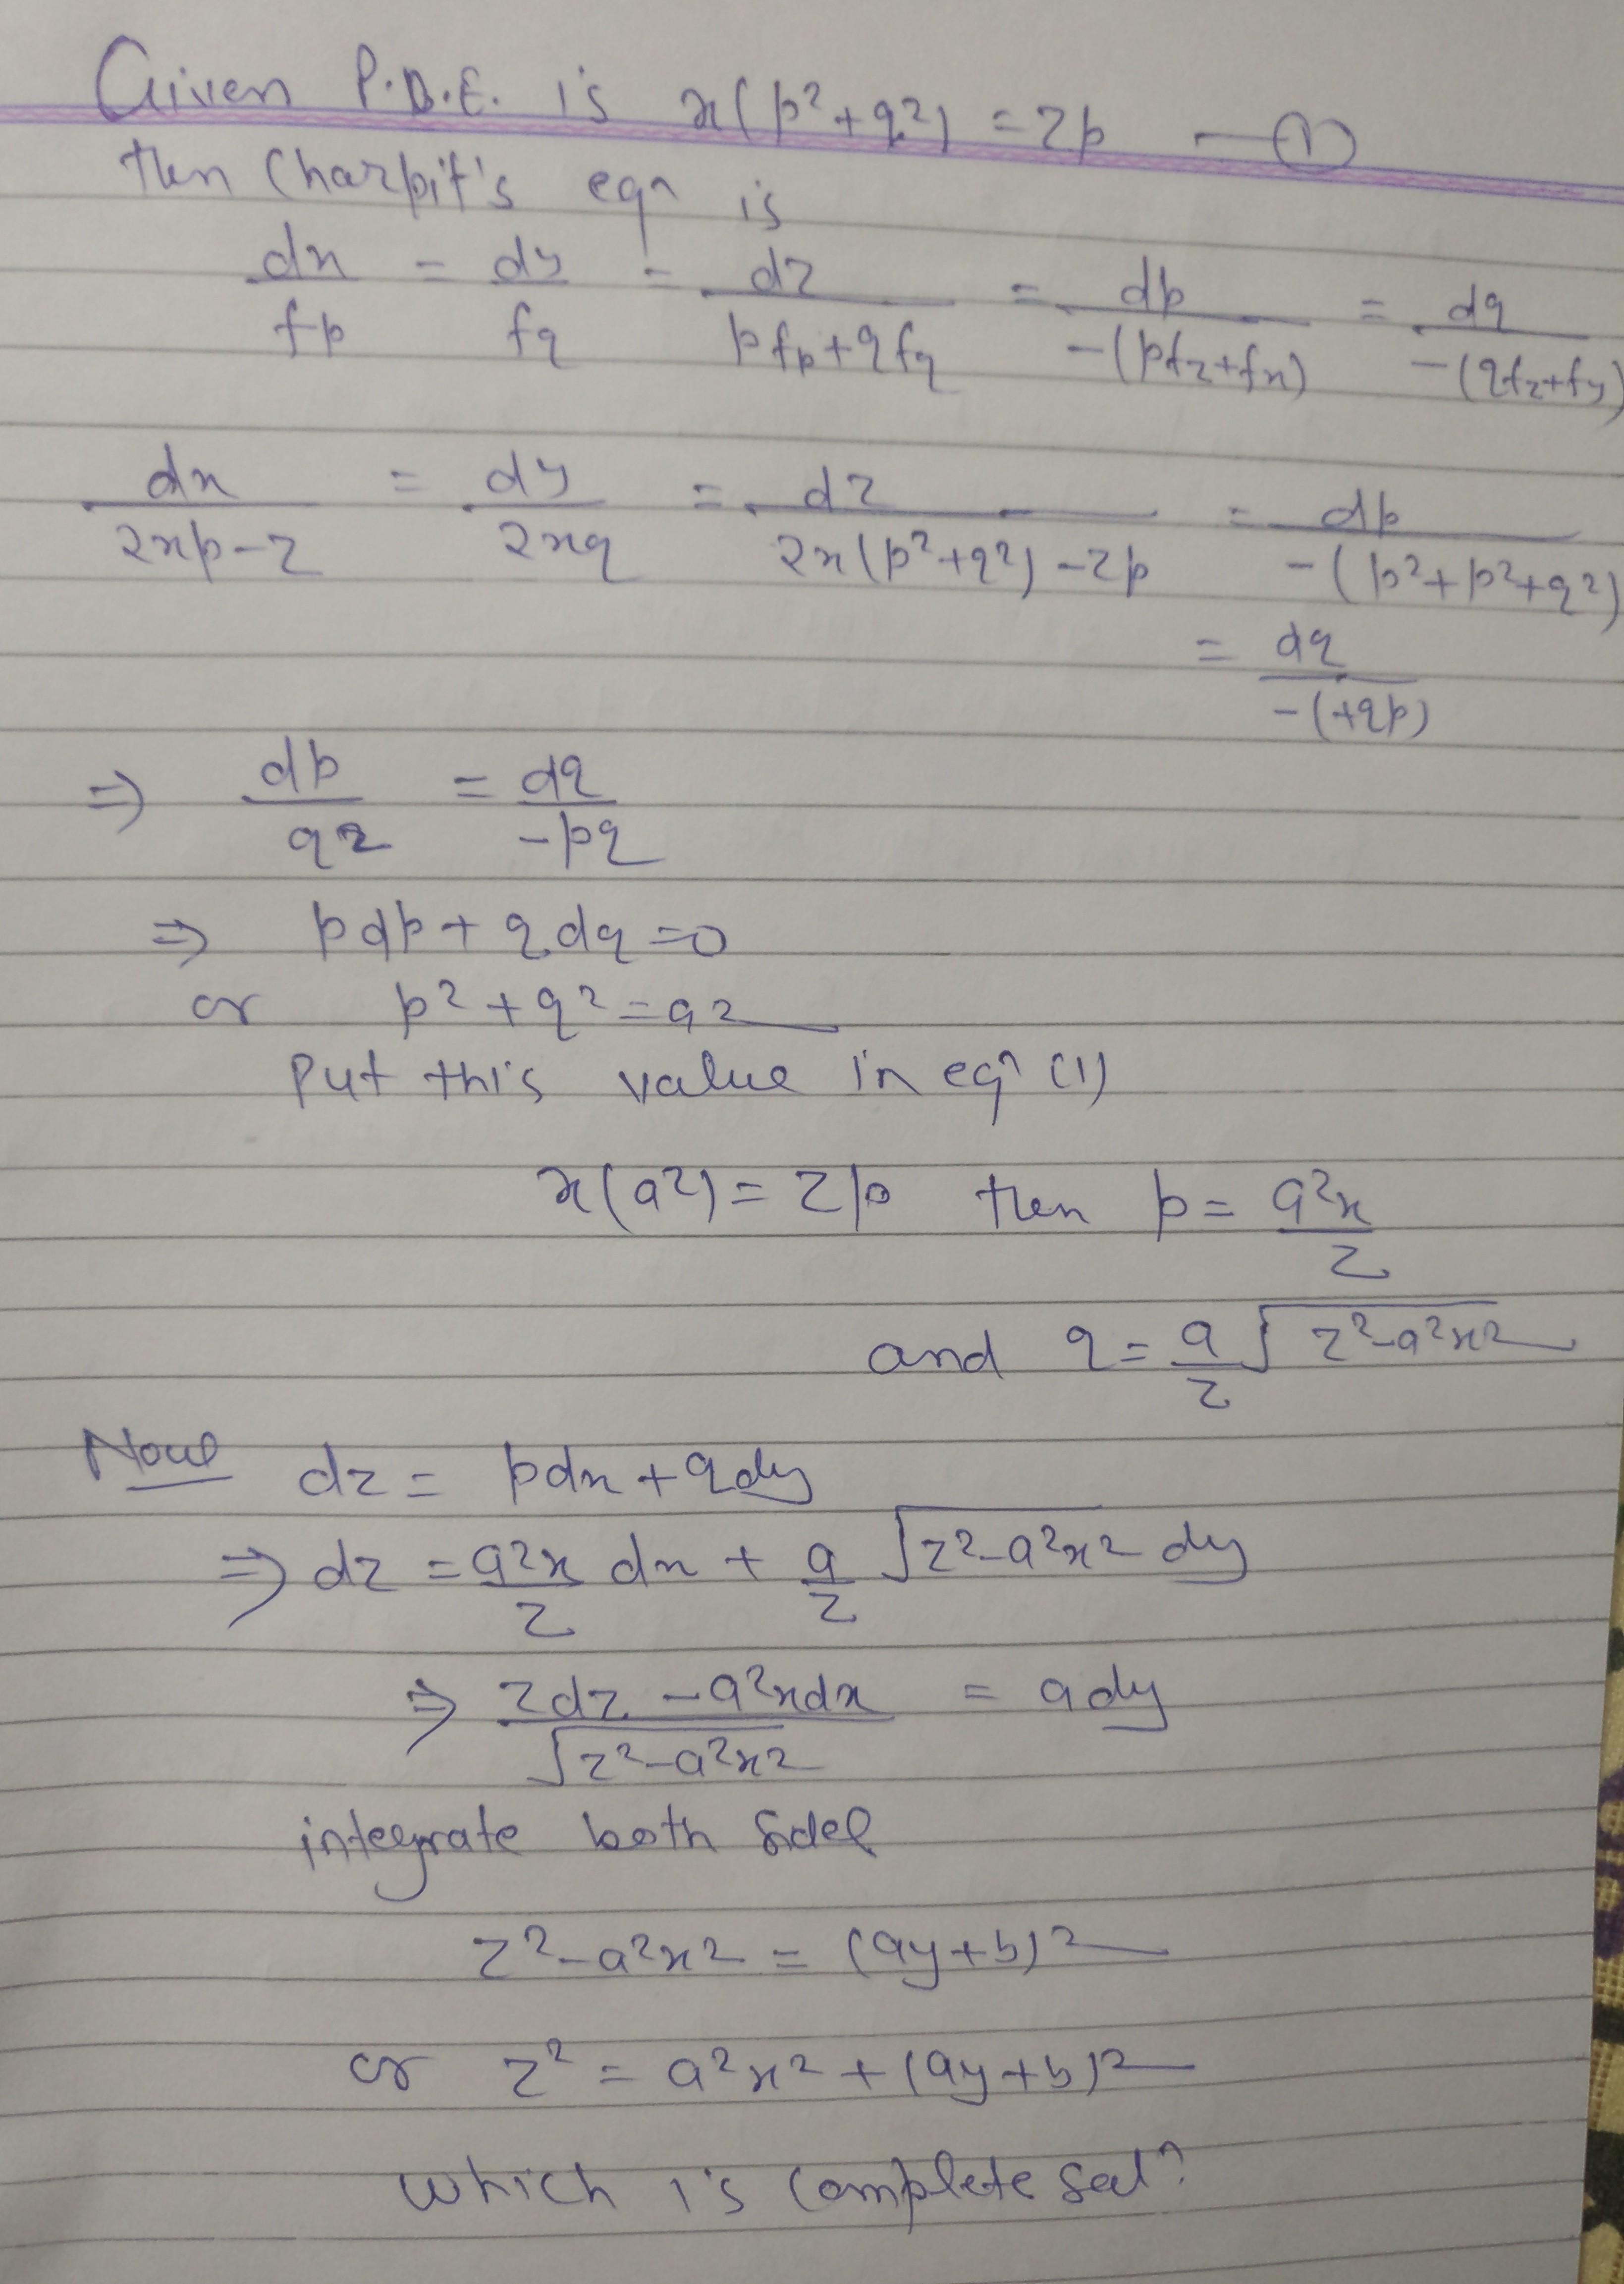 Given P.D.E. is x(p²+q²) = zp — ①
then Charpit's eqn is
dx/fp = dy/fq = dz/(pfp+qfq) = dp/-(pfz+fx) = dq/-(qfz+fy)
dx/(2xp-z) = dy/(2xq) = dz/(2x(p²+q²)-zp) = dp/-(p²+p²+q²)
= dq/-(+qp)
⇒ dp/q² = dq/-pq
⇒ pdp + qdq = 0
or p² + q² = a²
Put this value in eqn (1)
x(a²) = zp then p = a²x/z
and q = a/z √(z²-a²x²)
Now dz = pdx + qdy
⇒ dz = a²x/z dx + a/z √(z²-a²x²) dy
⇒ (zdz - a²xdx)/√(z²-a²x²) = ady
integrate both sides
z²-a²x² = (ay+b)²
or z² = a²x² + (ay+b)²
which is complete soln